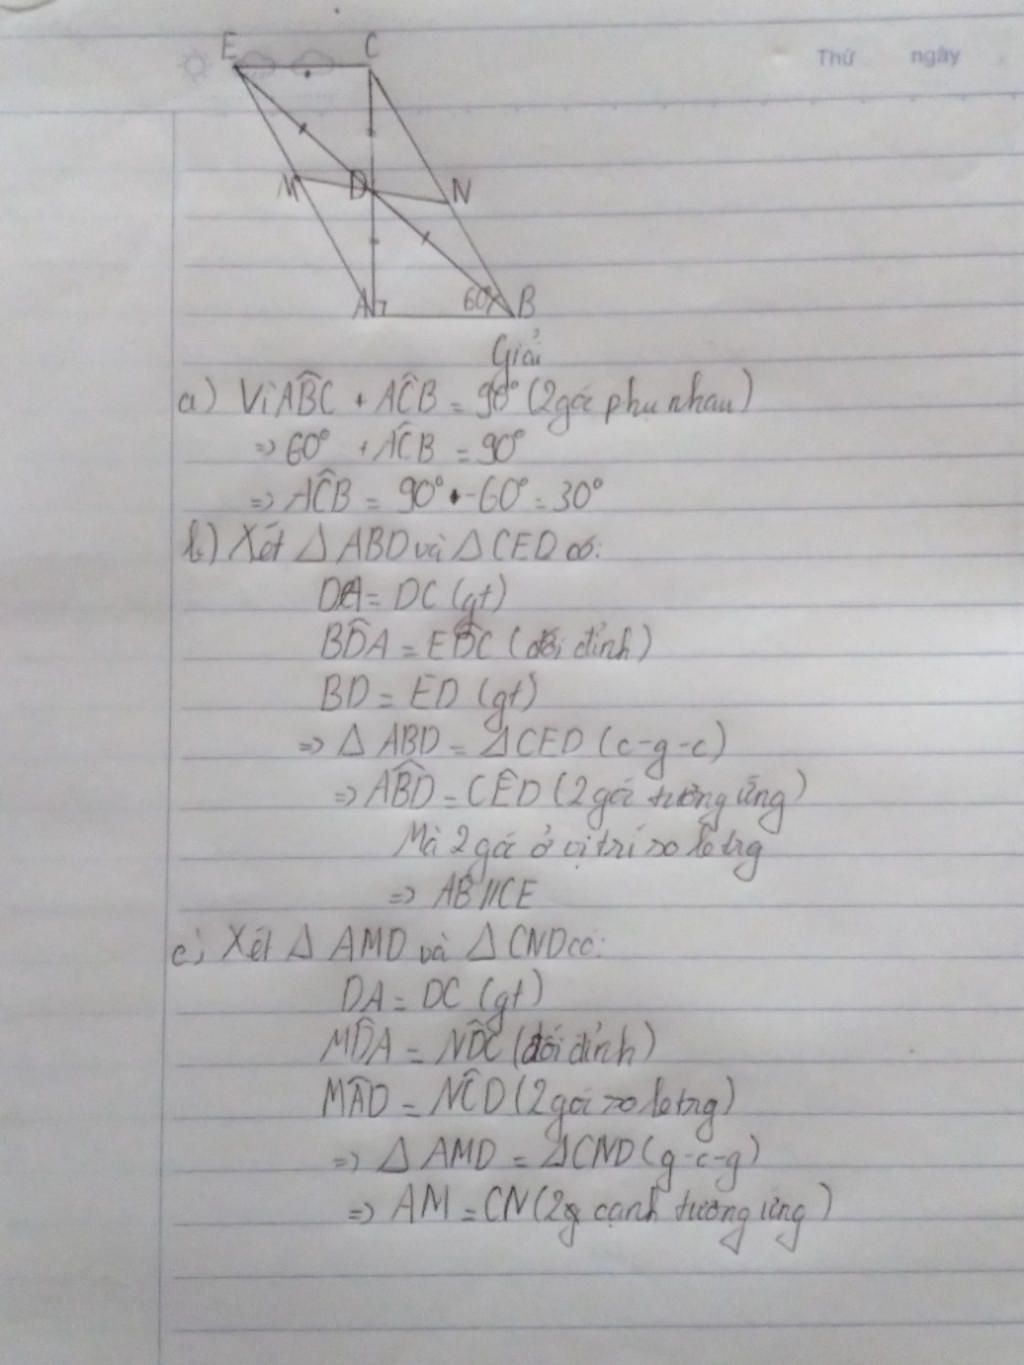 Thứ ngày
E C
M D N
A 60° B
Giải
a) Vì AB̂C + AĈB = 90° (2 gó phụ nhau)
=> 60° + AĈB = 90°
=> AĈB = 90° - 60° = 30°
b) Xét △ ABD và △ CED có:
DA = DC (gt)
BD̂A = ED̂C (đối đỉnh)
BD = ED (gt)
=> △ ABD = △CED (c-g-c)
=> AB̂D = CÊD (2 gó tương ứng)
Mà 2 gó ở vị trí so le trg
=> AB // CE
c) Xét △ AMD và △ CND có:
DA = DC (gt)
MD̂A = ND̂C (đối đỉnh)
MÂD = NĈD (2 gó so le trg)
=> △ AMD = △CND (g-c-g)
=> AM = CN (2 cạnh tương ứng)